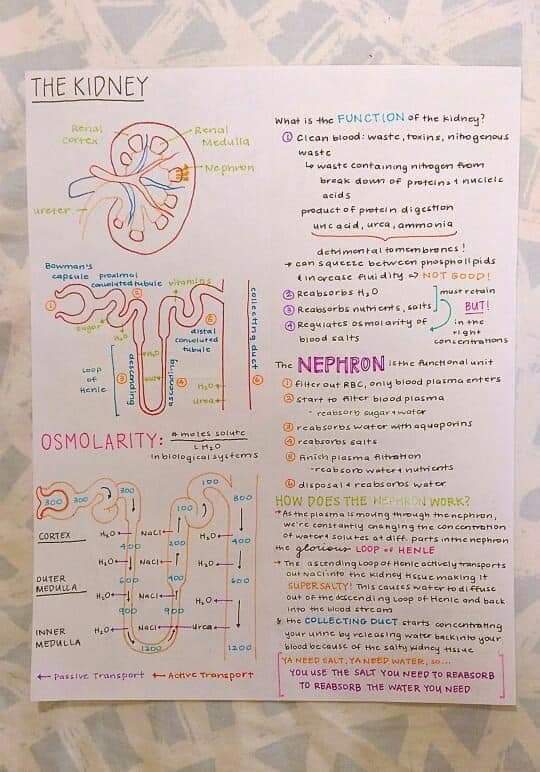 THE KIDNEY
Renal
Cortex
Renal
Medulla
Nephron
ureter
Bowman's
capsule
proximal
convoluted tubule
vitamins
1
2
sugar
H₂O
5
distal
convoluted
tubule
collecting duct
Loop
of
Henle
3
descending
H₂O
ascending
4
H₂O
Urea
6
OSMOLARITY: # moles solute
L H₂O
in biological systems
300
300
300
100
100
300
CORTEX
H₂O
NaCl
H₂O
400
200
400
H₂O
NaCl
H₂O
OUTER
MEDULLA
600
400
600
H₂O
NaCl
H₂O
900
900
INNER
MEDULLA
H₂O
NaCl
Urea
1200
1200
← Passive Transport
← Active Transport
What is the FUNCTION of the kidney?
1 Clean blood: waste, toxins, nitrogenous
waste
↳ waste containing nitrogen from
break down of proteins + nucleic
acids
product of protein digestion
uric acid, urea, ammonia
detrimental to membranes!
→ can squeeze between phospholipids
& increase fluidity → NOT GOOD!
2 Reabsorbs H₂O
3 Reabsorbs nutrients, salts
must retain
BUT!
4 Regulates osmolarity of
blood salts
in the
right
concentrations
The NEPHRON is the functional unit
1 filter out RBC, only blood plasma enters
2 start to filter blood plasma
- reabsorb sugar + water
3 reabsorbs water with aquaporins
4 reabsorbs salts
5 finish plasma filtration
- reabsorb water + nutrients
6 disposal + reabsorbs water
HOW DOES THE NEPHRON WORK?
→ As the plasma is moving through the nephron,
we're constantly changing the concentration
of water + solutes at diff. parts in the nephron
the glorious LOOP OF HENLE
→ The ascending loop of Henle actively transports
out NaCl into the kidney tissue making it
SUPER SALTY! This causes water to diffuse
out of the descending loop of Henle and back
into the blood stream
& the COLLECTING DUCT starts concentrating
your urine by releasing water back into your
blood because of the salty kidney tissue
YA NEED SALT, YA NEED WATER, so...
YOU USE THE SALT YOU NEED TO REABSORB
TO REABSORB THE WATER YOU NEED